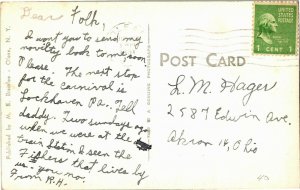 Dear Folk,
I want you to send my
novelty book to me soon
Please. The next stop
for the carnival is
Lockhaven Pa. Tell
daddy. Two sundays ago
when we were at the
train Station I seen the
Fishers that lives by
us - you no.
From R.H.
Published by M. R. Olean, N. Y.
POST CARD
UNITED STATES
POSTAGE
1 CENT 1
L. M. Hager
2587 Edwin Ave.
Akron 14, Ohio